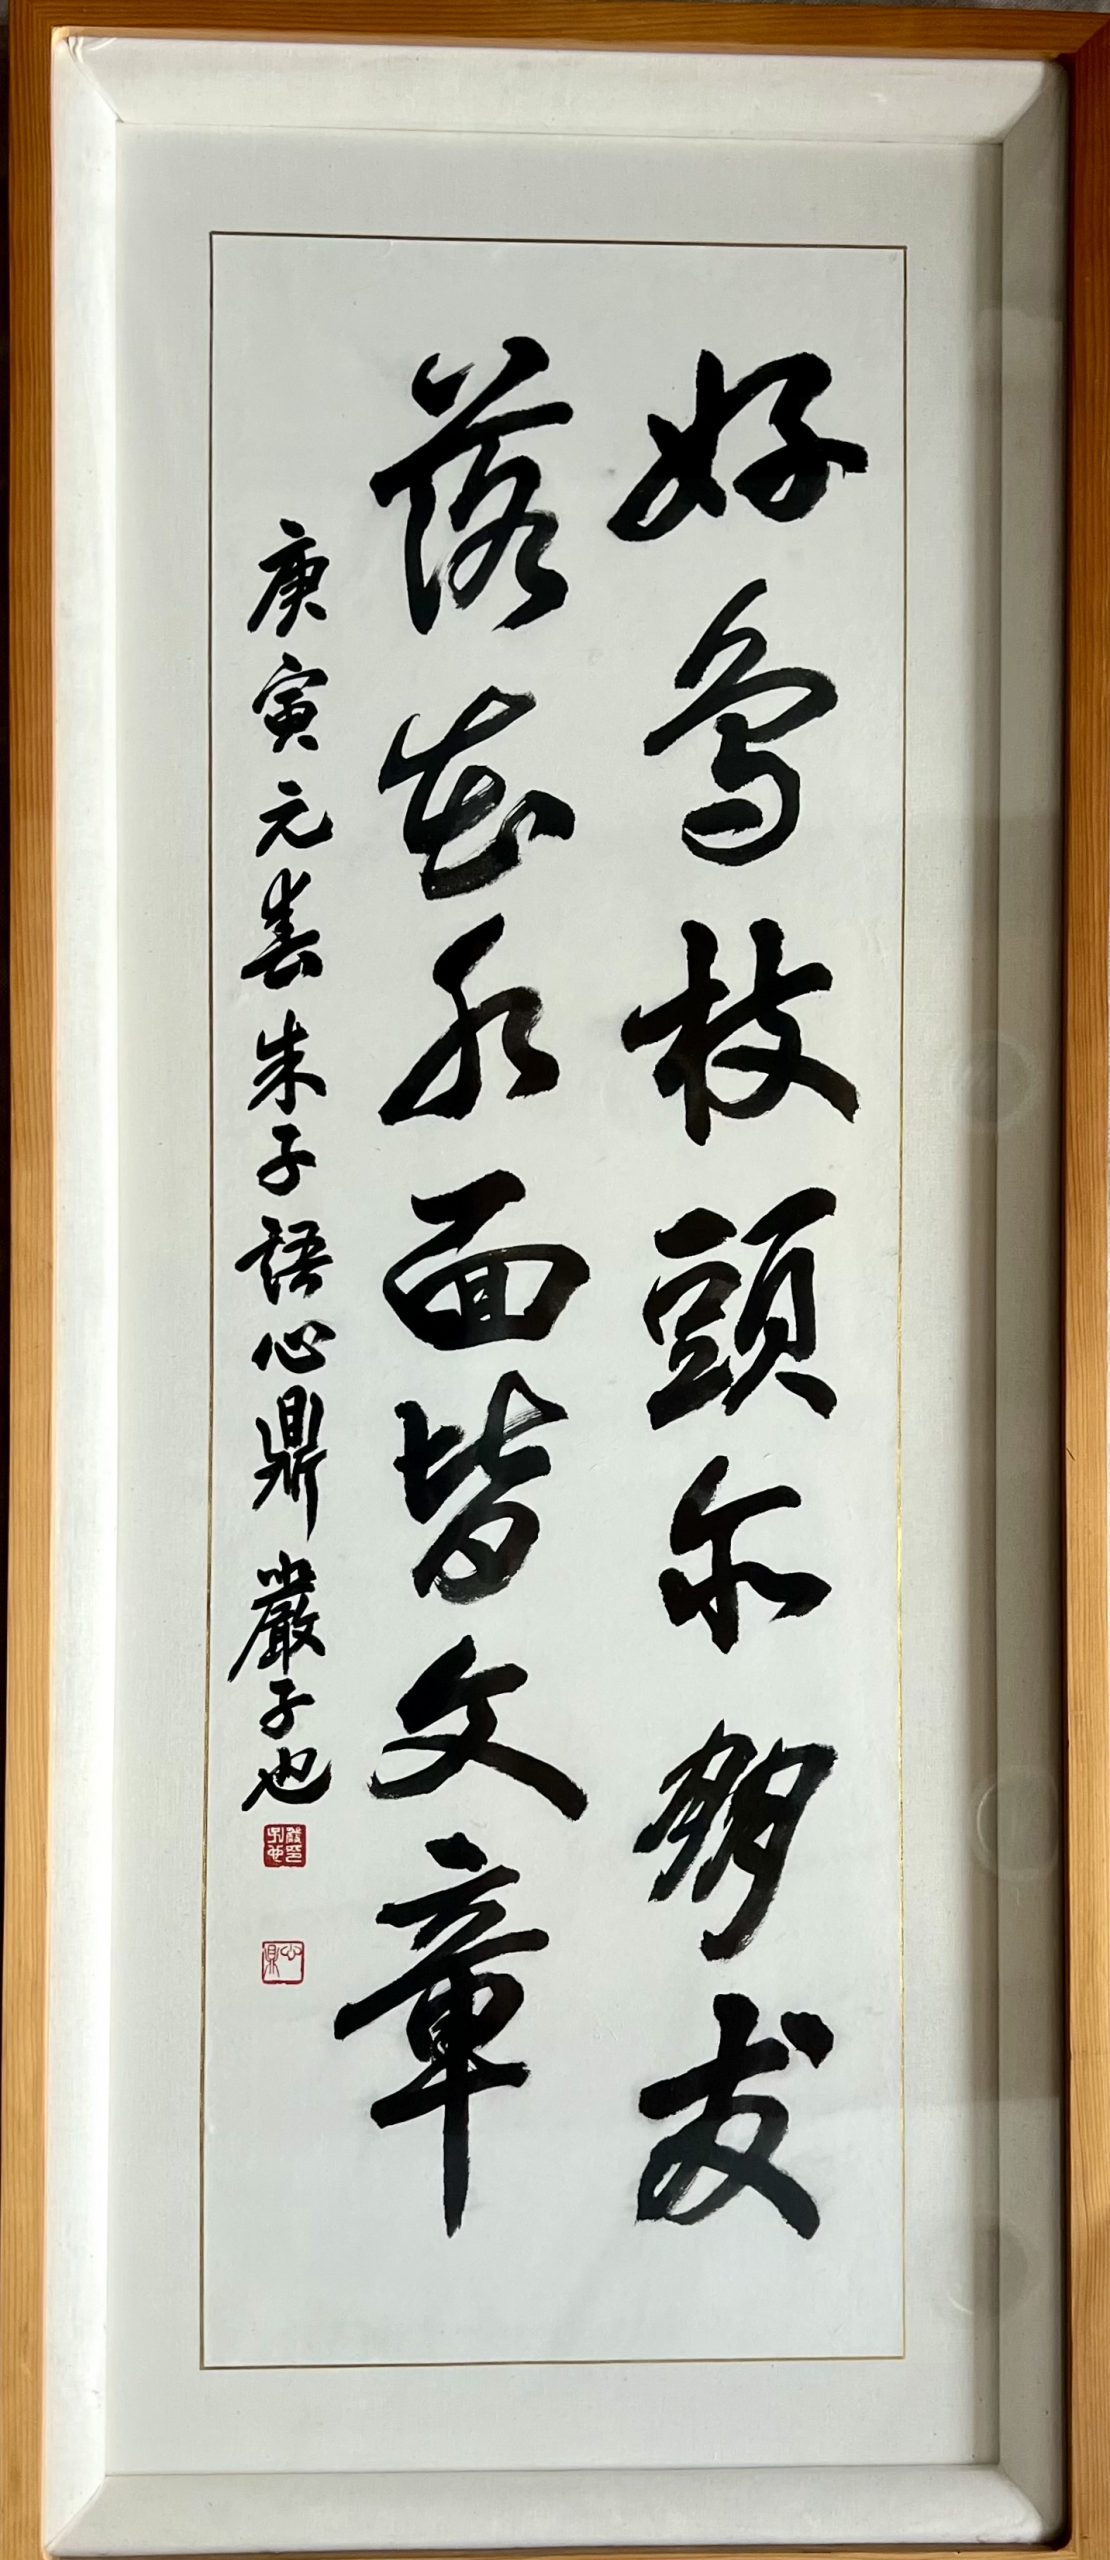 好鳥枝頭亦朋友
落花水面皆文章
庚寅元春朱子語心鼎嚴子也
嚴印子也
心鼎